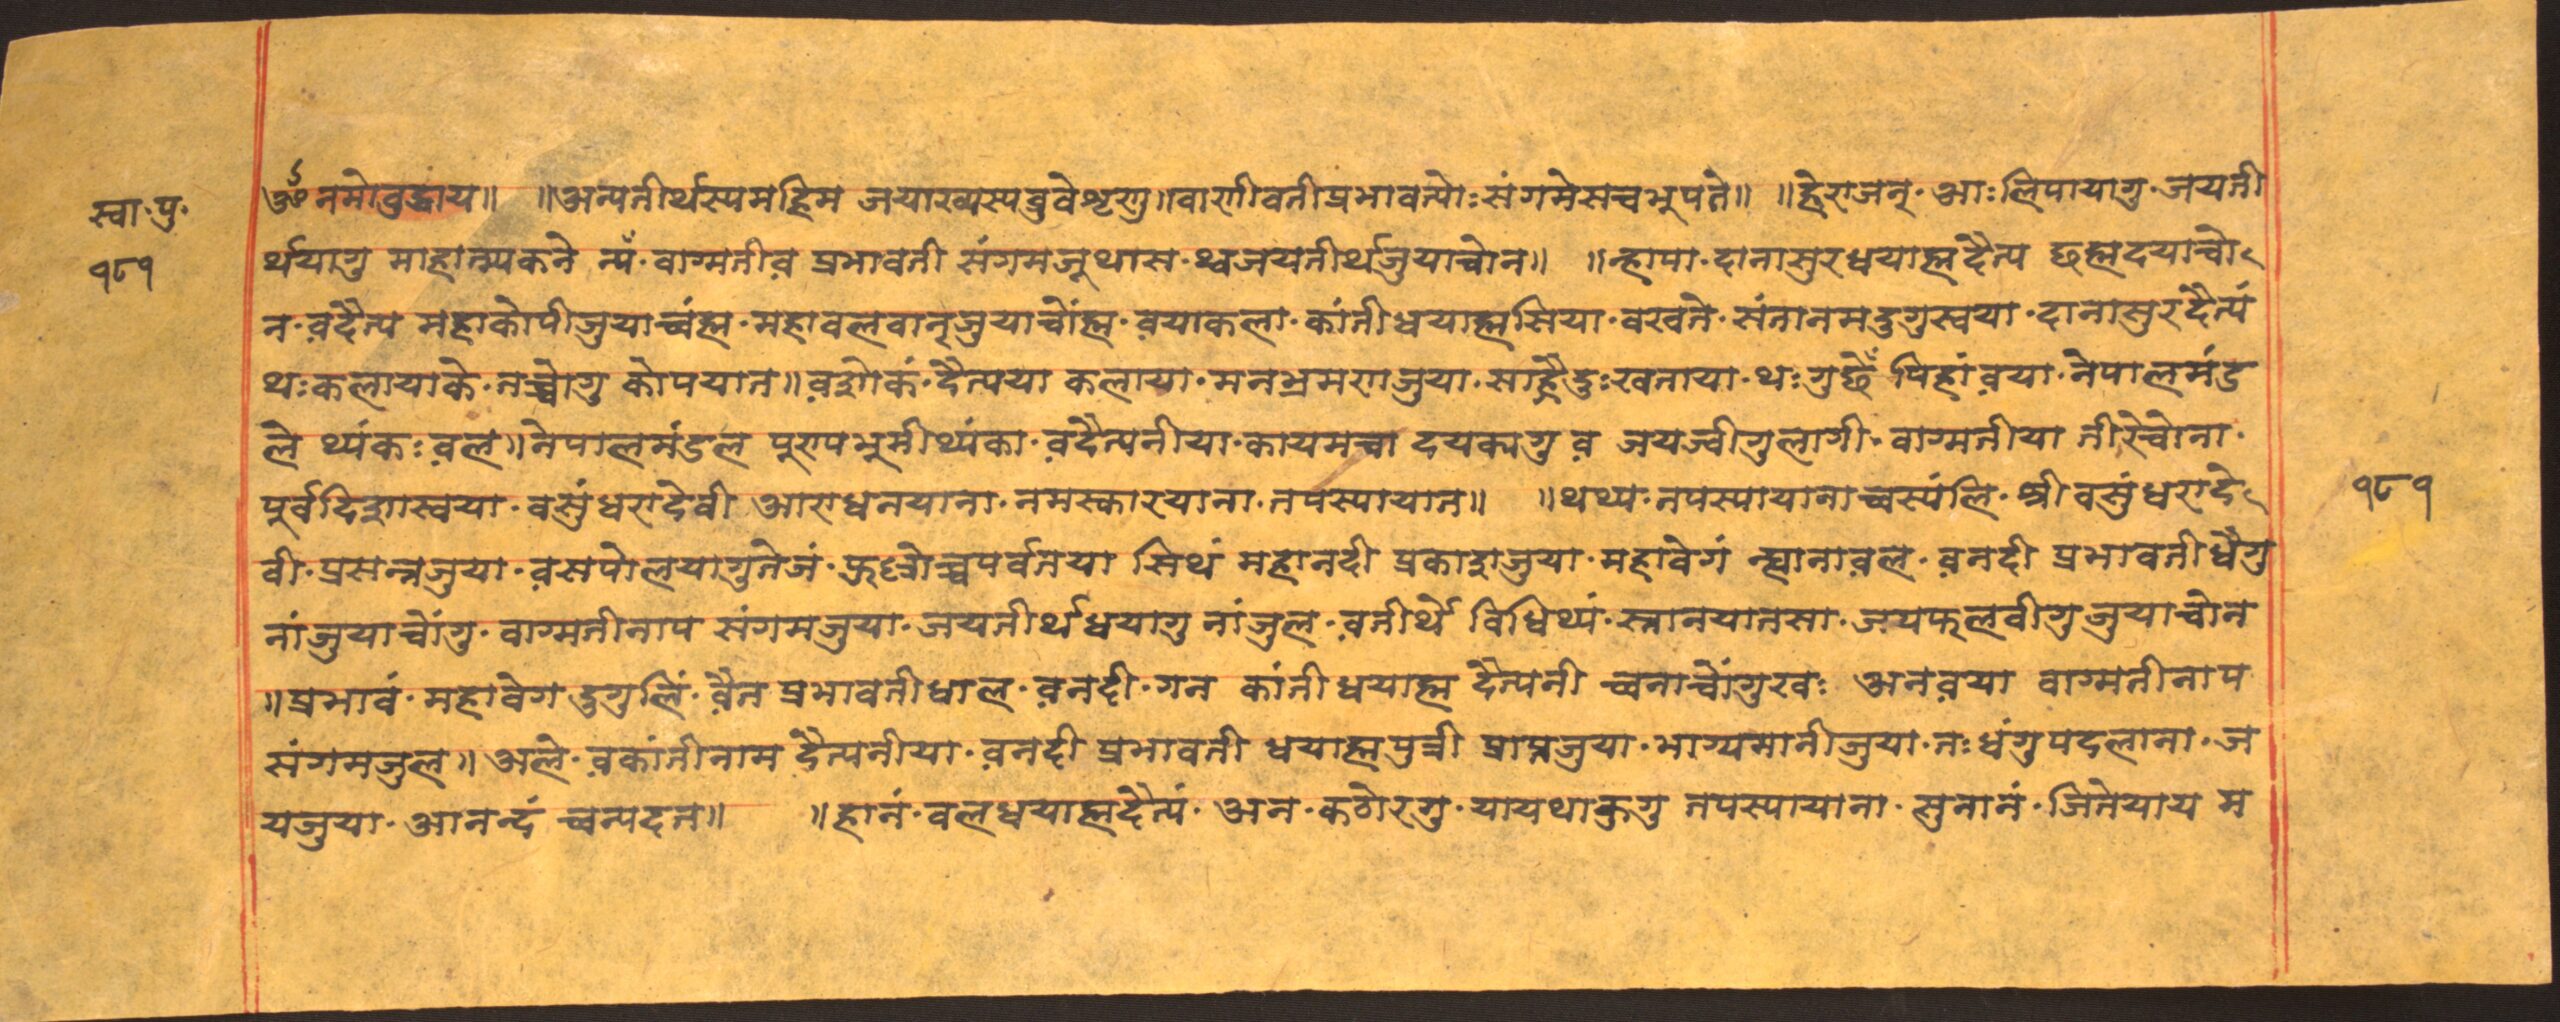 स्वा·पु·
१८१
ॐ नमोवुद्धाय॥ ॥अन्यतीर्थस्यमहिम जयाख्यस्यव्रुवेशृणु॥वाणीवतीप्रभावत्योःसंगमेसत्त्वभुपते॥ ॥हेराजन्·आःलिपायागु·जयती
र्थयागु माहात्म्यकने न्यँ·वाग्मतीव़ प्रभावती संगमजूथास·थ्वजयतीर्थजुयाच्वोन॥ ॥न्हापा·दानासुरधयाह्मदैत्य छह्मदयाच्वो
न·व़दैत्य महाकोपीजुयाच्वंह्म·महावलवान्जुयाचोंह्म·व़याकला·कांतीधयाह्मसिया·वखते·संतानमदुगुस्वया·दानासुरदैत्यं
थःकलायाके·तच्वोगु कोपयात॥व़शोकं·दैत्यया कलाया·मनभ्रमराजुया·साह्रैदुःखताया·थःगुछेँ पिहांव़या·नेपालमंड
ले थ्यंकःव़ल॥नेपालमंडल पुरुपभूमीथ्यंका·व़दैत्यनीया·कायमचा दयक्यगु व़ जयज्वीगुलागी·वाग्मतीया तीरेचोना·
पुर्वदिशास्वया·वसुंधरादेवी आराधनयाना·नमस्कारयाना·तपस्यायात॥ ॥थथ्य·तपस्यायानाच्वस्यंलि·श्री वसुंधरादे
वी·प्रसन्नजुया·व़सपोलयागुतेजं·फुच्वोच्वपर्वतया सिथं महानदी प्रकाशजुया·महावेगं न्ह्यानाव़ल·व़नदी प्रभावतीधैगु
नांजुयाचोंगु·वाग्मतीनाप संगमजुया·जयतीर्थधयागु नांजुल·व़तीर्थे विधिथ्यं·स्नानयातसा·जयफलवीगुजुयाचोन
॥प्रभावं·महावेगदुगुलिं·व़ैत प्रभावतीधाल·व़नदी·गन कांतीधयाह्म दैत्यनी च्वनाचोंगुखः अनव़या वाग्मतीनाप
संगमजुल॥अले·व़कांतीनाम दैत्यनीया·व़नदी प्रभावती धयाह्मपुत्री प्राप्तजुया·भाग्यमानीजुया·तःधंगुपदलाना·ज
यजुया·आनन्दं च्वन्यदत॥ ॥हानं·वलधयाह्मदैत्यं·अन·कठोरगु·यायथाकुगु तपस्यायाना·सुनानं·जितेयाय म
१८१